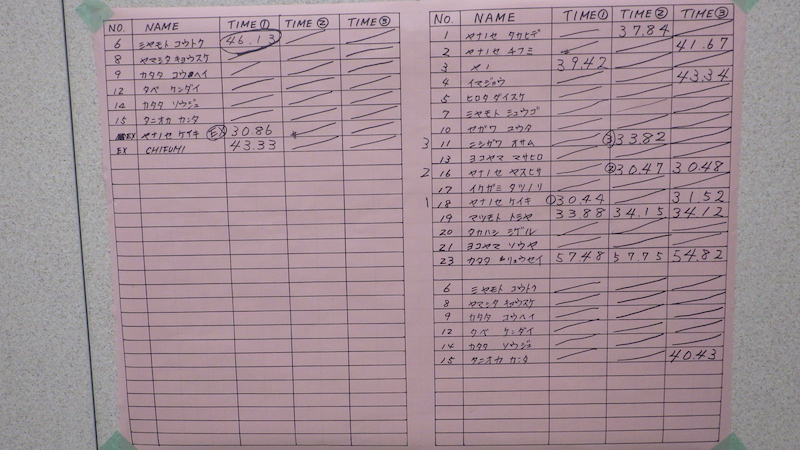 NO. NAME TIME① TIME② TIME③
6 ミヤモト コウトク 46.13
8 ヤマシタ キョウスケ
9 カタタ コウヘイ
12 タベ ケンダイ
14 カタタ ソウジュ
15 タニオカ カンタ
EX ヤナノセ ケイキ EX 30.86
EX CHIFUMI 43.33
NO. NAME TIME① TIME② TIME③
1 ヤナノセ タカヒデ 37.84
2 ヤナノセ チフミ 41.67
3 39.42
4 イマジョウ 43.34
5 ヒロタ ダイスケ
7 ミヤモト シュウゴ
10 セガワ コウタ
3 11 ニシザワ オサム ③33.82
13 ヨコヤマ マサヒロ
2 16 ヤナノセ ヤスヒサ ②30.47 30.48
17 イケガミ タツノリ
1 18 ヤナノセ ケイキ ①30.44 31.52
19 マツモト トミヤ 33.88 34.15 34.12
20 タカハシ シゲル
21 ヨコヤマ ソウヤ
23 カタタ リョウセイ 57.48 57.75 54.82
6 ミヤモト コウトク
8 ヤマシタ キョウスケ
9 カタタ コウヘイ
12 タベ ケンダイ
14 カタタ ソウジュ
15 タニオカ カンタ 40.43